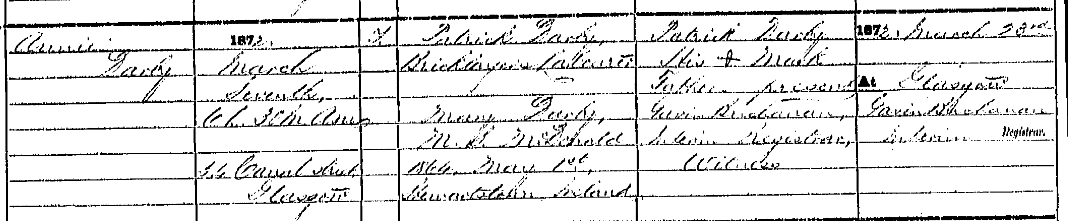 Annie
Darby
1872.
March
Seventh,
6h. 30m A.M.
Canal Street
Glasgow
F
Patrick Darby,
Bricklayer's Labourer
Mary Darby,
M.S. McDonald
1864, May 1st,
Stewartstown, Ireland
Patrick Darby
His X Mark
Father, present
Gavin Buchanan,
Interim Registrar,
Witness
1872. March 23rd
At Glasgow
Gavin Buchanan
Interim Registrar.